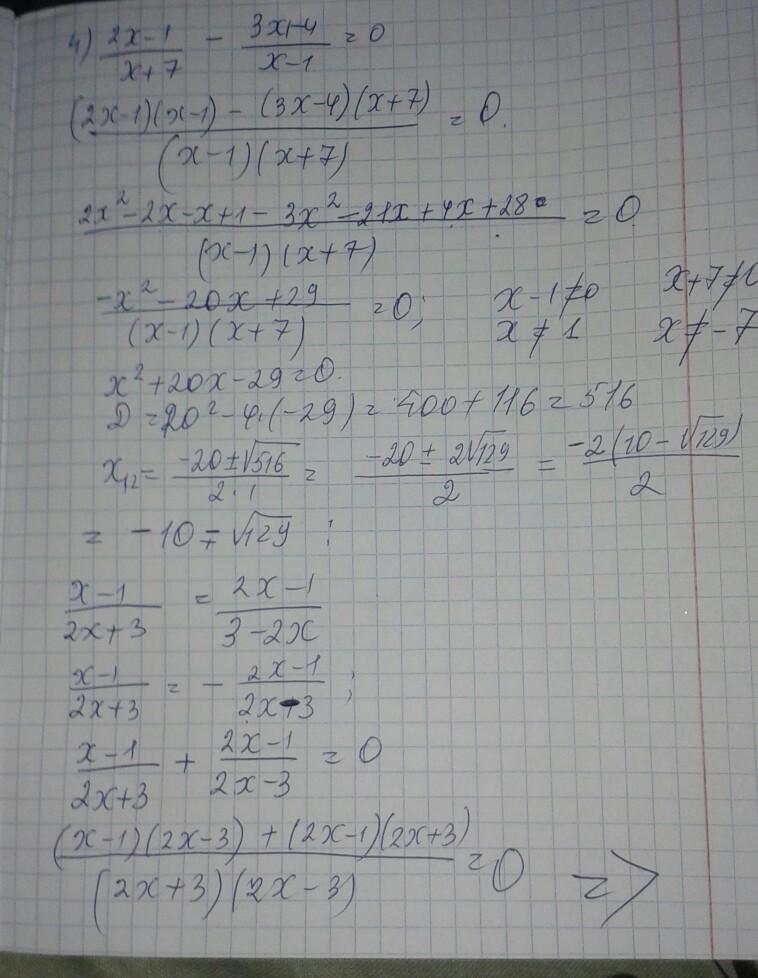 4) (2x-1)/(x+7) - (3x+4)/(x-1) = 0
((2x-1)(x-1) - (3x-4)(x+7))/((x-1)(x+7)) = 0.
(2x²-2x-x+1-3x²-21x+4x+28)/((x-1)(x+7)) = 0
(-x²-20x+29)/((x-1)(x+7)) = 0; x-1≠0 x+7≠0
x≠1 x≠-7
x²+20x-29=0.
D=20²-4·(-29)=400+116=516
x₁₂= (-20±√516)/(2·1) = (-20±2√129)/2 = (-2(10-√129))/2
= -10∓√129 ;
(x-1)/(2x+3) = (2x-1)/(3-2x)
(x-1)/(2x+3) = - (2x-1)/(2x-3) ;
(x-1)/(2x+3) + (2x-1)/(2x-3) = 0
((x-1)(2x-3)+(2x-1)(2x+3))/((2x+3)(2x-3)) =0 =>